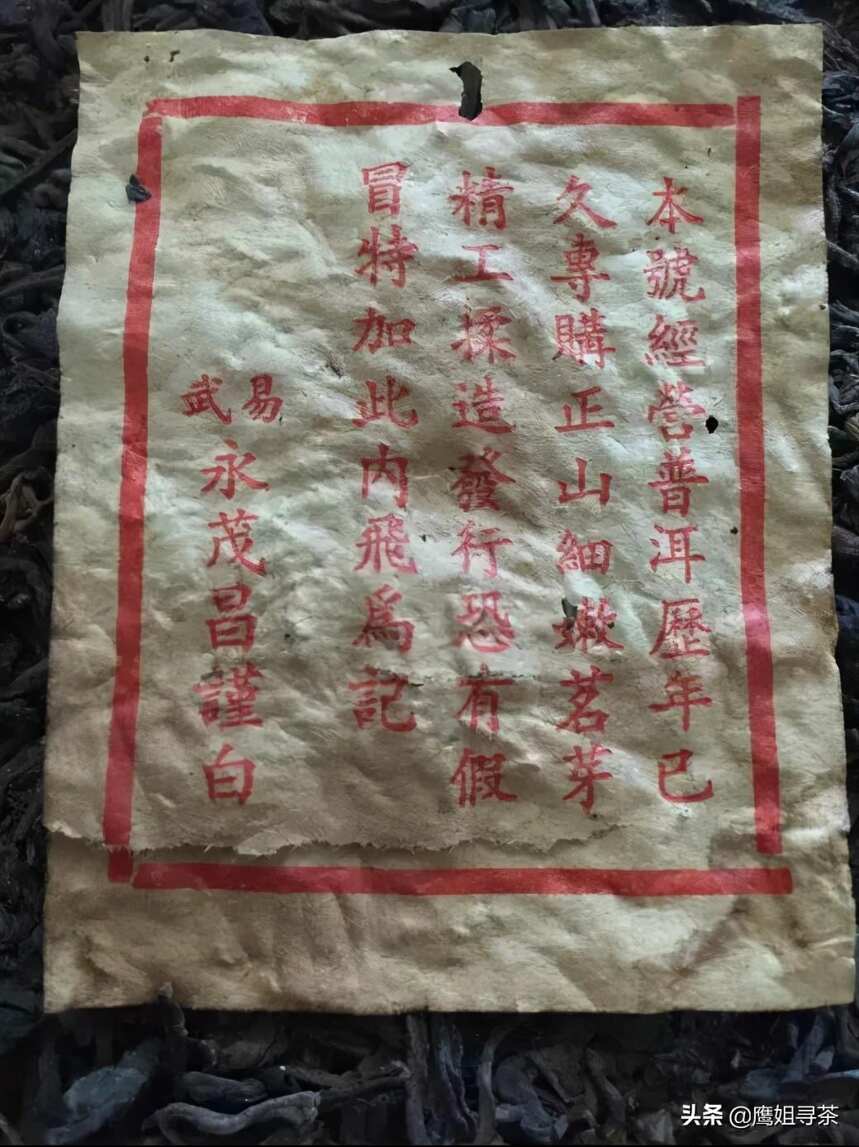 本號經營普洱歷年已
久專購正山細嫩茗芽
精工揉造發行恐有假
冒特加此内飛爲記
易武
永茂昌謹白
头条 @鹰姐寻茶